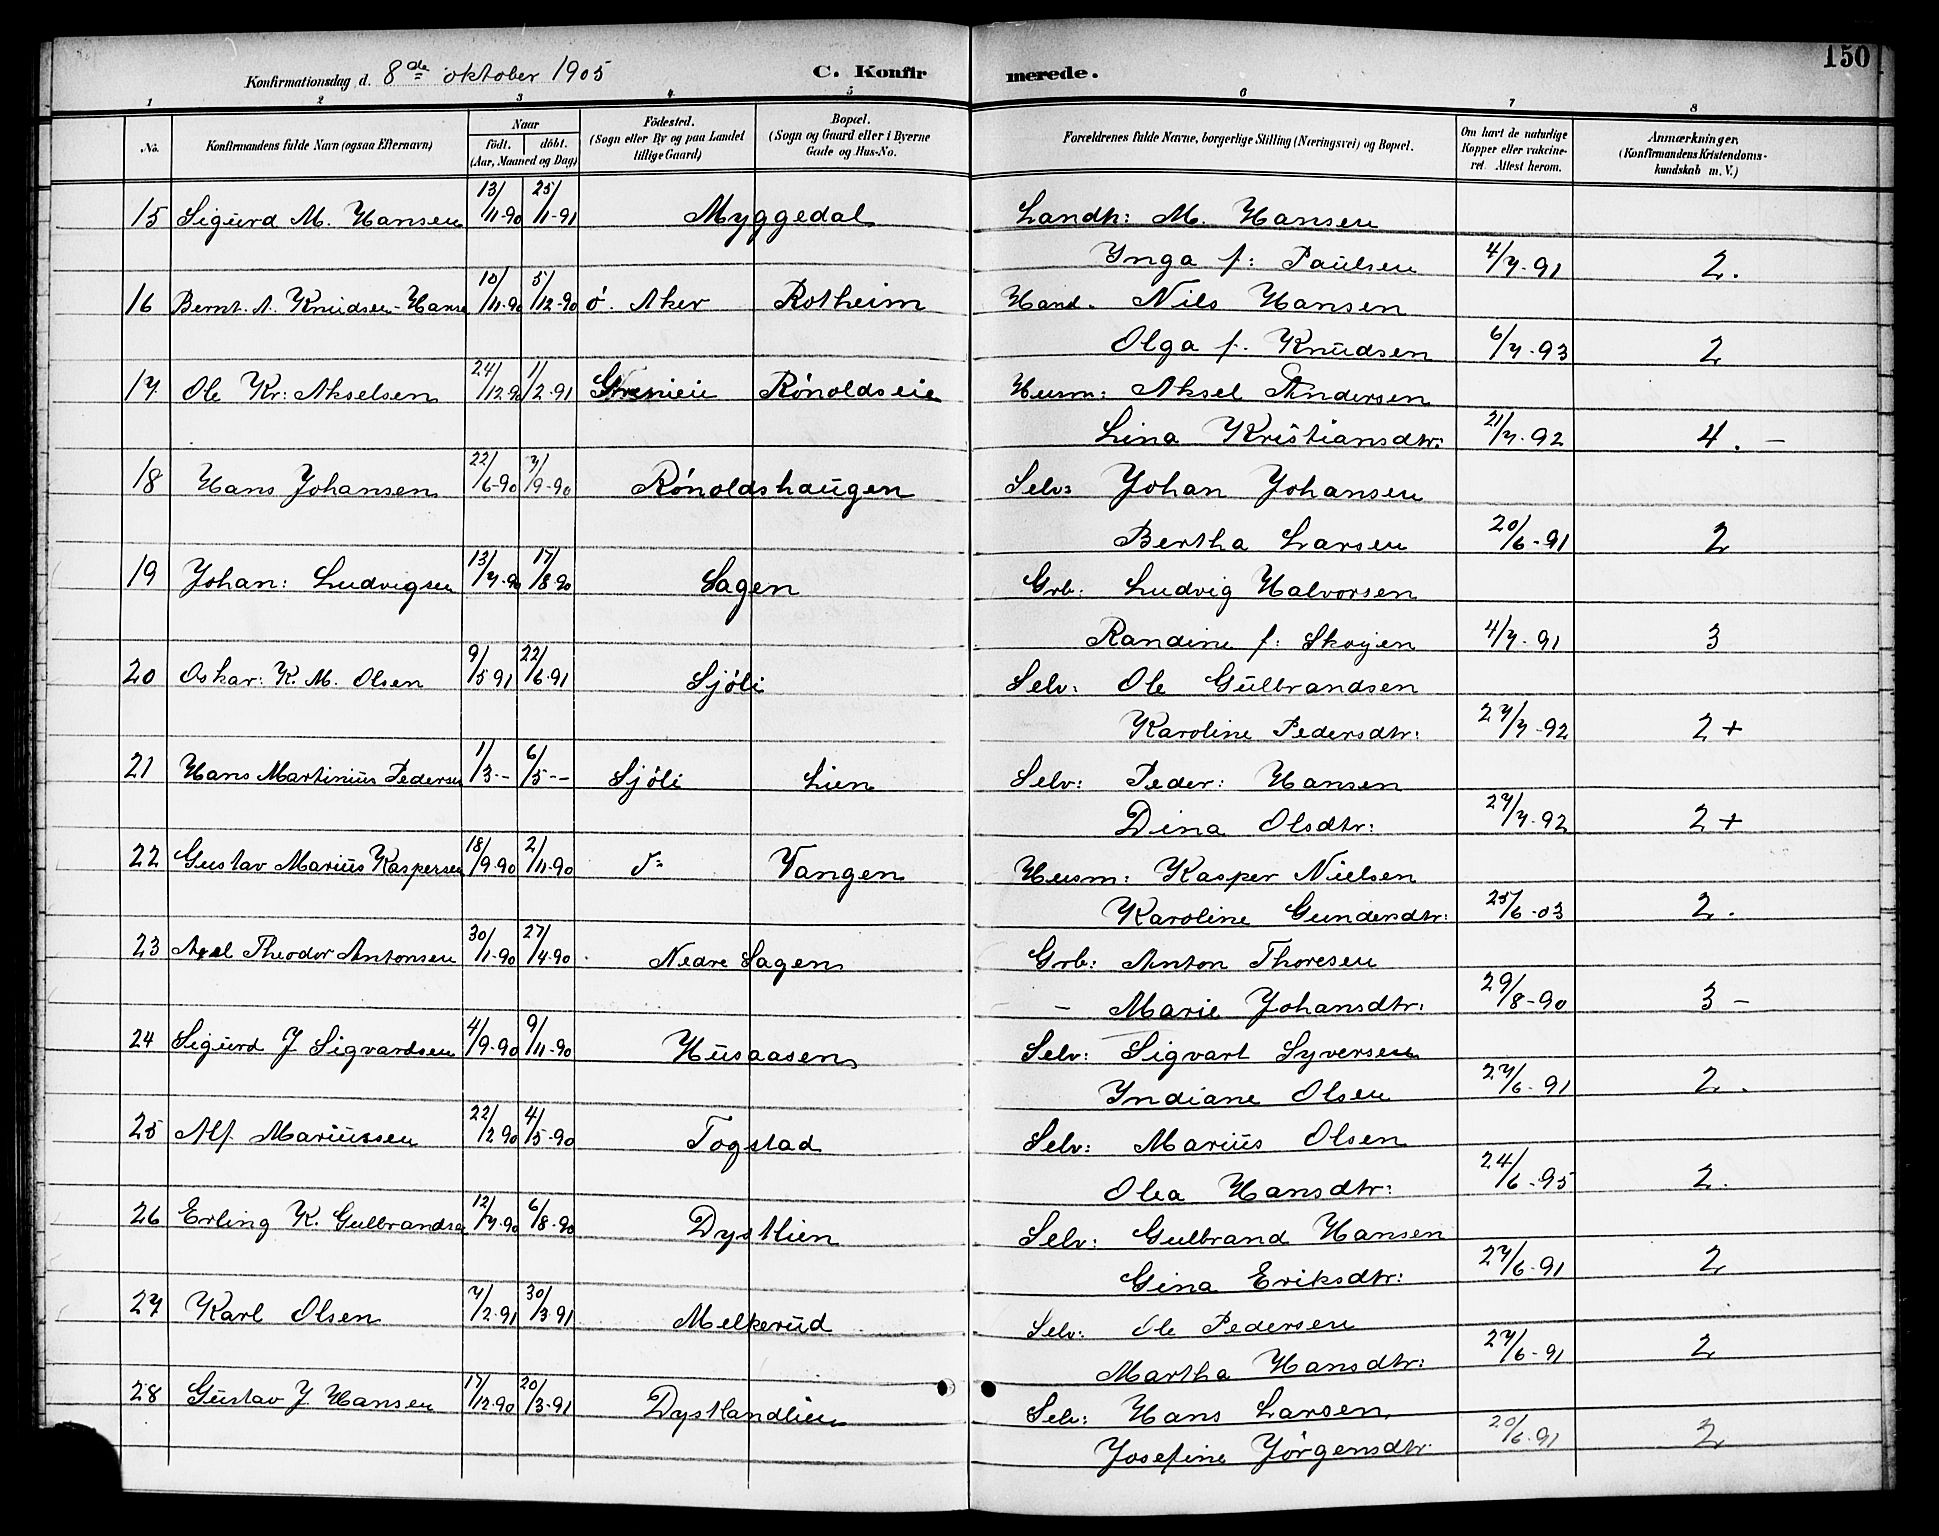 150
Konfirmationsdag d. 8de oktober 1905 C. Konfirmerede.
1 2 3 4 5 6 7 8
No. Konfirmandens fulde Navn (ogsaa Efternavn) Naar födt. döbt. (Aar, Maaned og Dag) Födested. (Sogn eller By og paa Landet tillige Gaard) Bopæl. (Sogn og Gaard eller i Byerne Gade og Hus-No. Forældrenes fulde Navne, borgerlige Stilling (Næringsvei) og Bopæl. Om havt de naturlige Kopper eller vakcineret. Attest herom. Anmærkninger. (Konfirmandens Kristendomskundskab m. V.)
15 Sigurd M. Hansen 13/11-90 25/1-91 Myggedal Landh: M. Hansen
Inga f: Paulsen 4/7-91 2.
16 Bernt. A. Knudsen-Hanse 10/11-90 5/12-90 ö. Aker Rotheim Hand. Nils Hansen
Olga f. Knudsen 6/7-93 2
17 Ole Kr: Akselsen 24/12-90 1/2-91 Rönoldseie Husm: Aksel Andersen
Lina Kristiansdtr: 21/7-92 4. -
18 Hans Johansen 22/6-90 7/9-90 Rönoldshaugen Selv: Johan Johansen
Bertha Larsen 20/6-91 2
19 Johan: Ludvigsen 13/7-90 17/8-90 Sagen Grb: Ludvig Halvorsen
Randine f: Skoyen 4/7-91 3
20 Oskar: K. M. Olsen 9/5 91 22/6-91 Sjöli Selv: Ole Gulbrandsen
Karoline Pedersdtr: 27/7-92 2 +
21 Hans Martinius Pedersen 1/3 -- 6/5 -- Sjöli Lien Selv: Peder: Hansen
Dina Olsdtr: 27/7-92 2 +
22 Gustav Marius Kaspersen 18/9-90 2/11-90 Vangen Husm: Kasper Nielsen
Karoline Gundersdtr: 25/6-03 2.
23 Axel Theodor Antonsen 30/1-90 27/4-90 Nedre Sagen Grb: Anton Thoresen
- Marie Johansdtr: 29/8-90 3 -
24 Sigurd J Sigvardsen 4/9-90 9/11-90 Husaasen Selv: Sigvart Syversen
Indiane Olsen 27/6-91 2.
25 Alf Mariussen 22/2 90 4/5-90 Togstad Selv: Marius Olsen
Olea Hansdtr: 24/6-95 2.
26 Erling K. Gulbrandsen 12/7-90 6/8-90 Dystlien Selv: Gulbrand Hansen
Gina Eriksdtr: 27/6-91 2
27 Karl Olsen 7/2-91 30/3-91 Melkerud Selv: Ole Pedersen
Martha Hansdtr: 27/6-91 2
28 Gustav J. Hansen 17/12-90 20/3-91 Dystlandlien Selv: Hans Larsen
Josefine Jörgensdtr 20/6-91 2